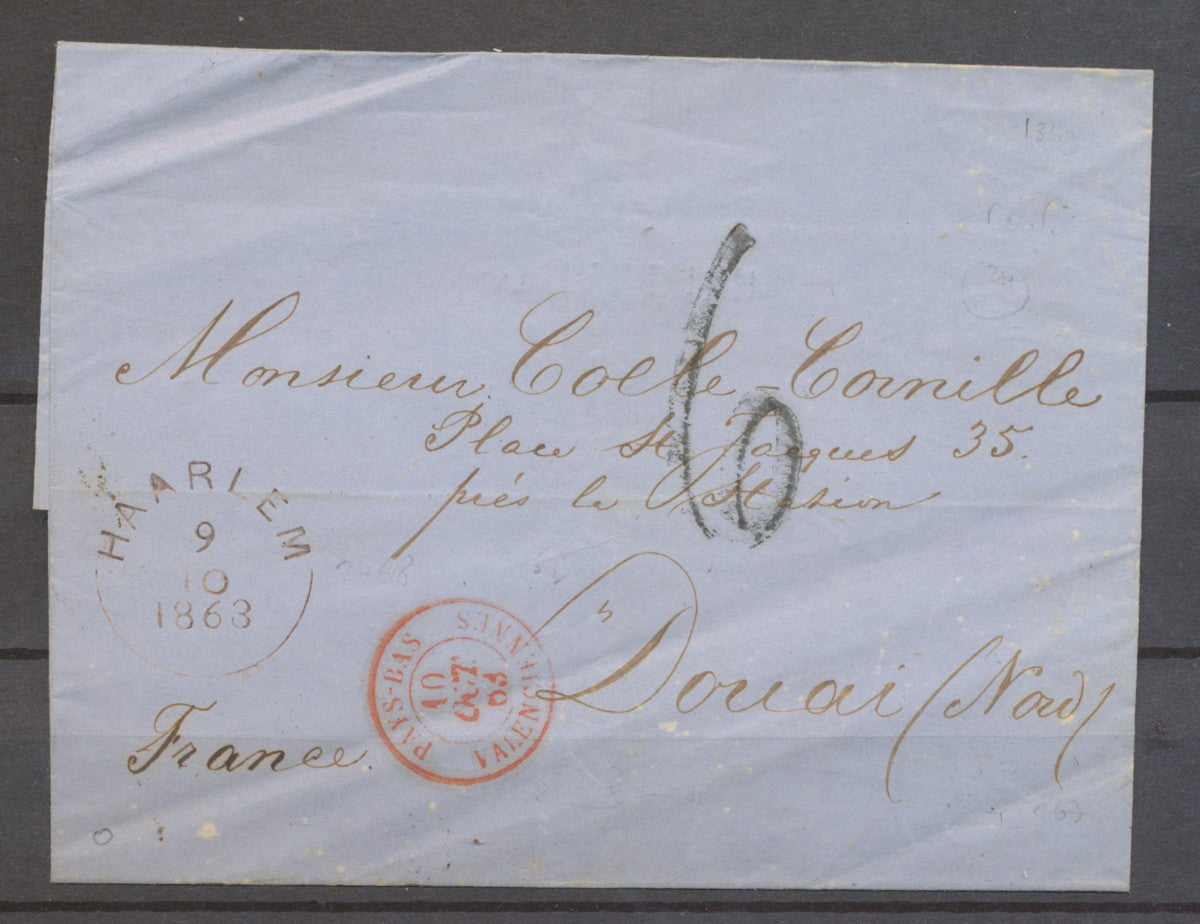 6
Monsieur Colle-Cornille
Place St Jacques 35.
près la Station
Douai (Nord)
France.
HAARLEM
9
10
1863
PAYS-BAS
10
OCT
63
VALENCIENNES